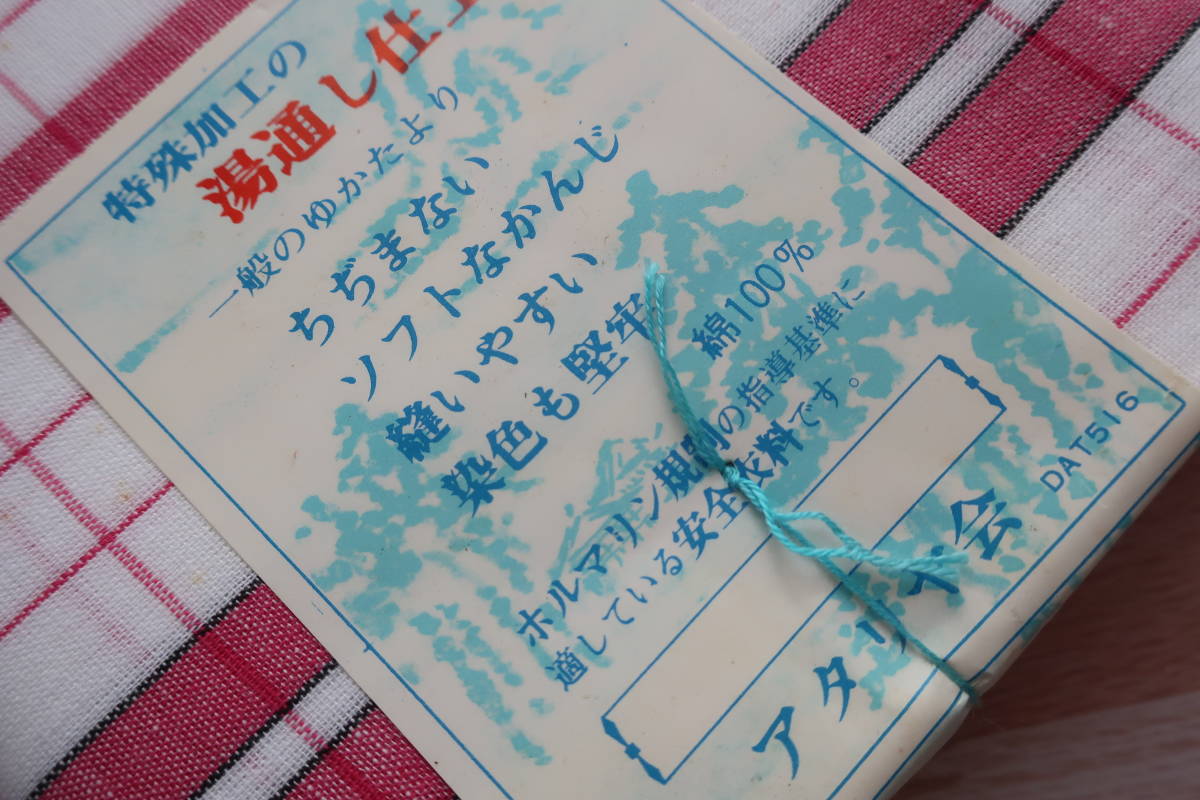 特殊加工の
湯通し仕上
一般のゆかたより
ちぢまない
ソフトなかんじ
縫いやすい
染色も堅牢
綿100%
ホルマリン規制の指導基準に
適している安全衣料です。
アタリヤ会
DAT516